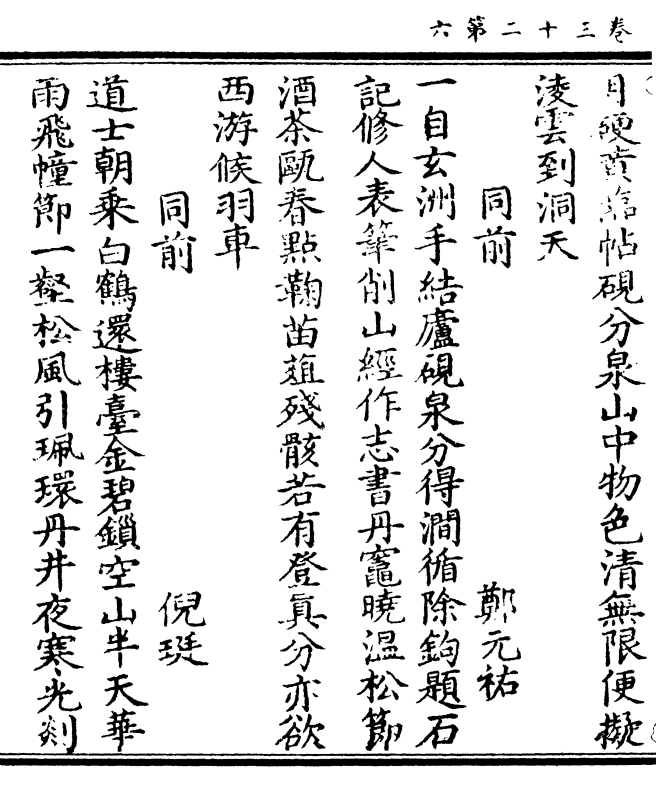 卷三十二第六
月硬黃臨帖硯分泉山中物色清無限便擬
淩雲到洞天
同前 鄭元祐
一自玄洲手結廬硯泉分得澗循除鉤題石
記修人表筆削山經作志書丹竈曉溫松節
酒茶甌春點鞠苗葅殘骸若有登真分亦欲
西游候羽車
同前 倪珽
道士朝乘白鶴還樓臺金碧鎖空山半天華
雨飛幢節一壑松風引珮環丹井夜寒光剡